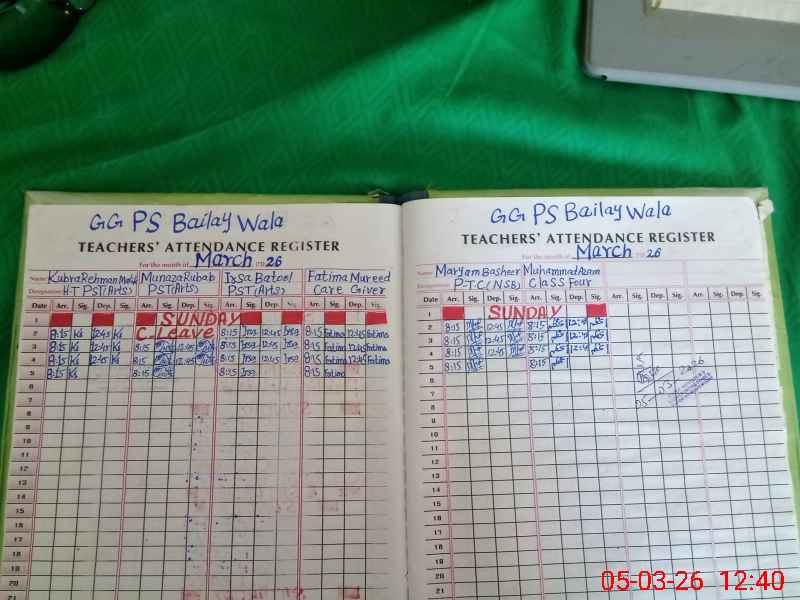 GG PS Bailay Wala
TEACHERS' ATTENDANCE REGISTER
For the month of March 26
Name Kubra Rehman Munaza Rubab Irsa Batool Fatima Mureed
Designation HT PST(Arts) PST(Arts) PST(Arts) Care Giver
Date Arr. Sig. Dep. Sig. Arr. Sig. Dep. Sig. Arr. Sig. Dep. Sig. Arr. Sig. Dep. Sig.
1 SUNDAY
2 8:15 Ks 12:45 Ks C. Leave 8:15 Irsa 12:45 Irsa 8:15 Fatima 12:45 Fatima
3 8:15 Ks 12:45 Ks 8:15 12:45 8:15 Irsa 12:45 Irsa 8:15 Fatima 12:45 Fatima
4 8:15 Ks 12:45 Ks 8:15 12:45 8:15 Irsa 12:45 Irsa 8:15 Fatima 12:45 Fatima
5 8:15 Ks 8:15 8:15 Irsa 8:15 Fatima
6
7
8
9
10
11
12
13
14
15
16
17
18
19
20
21
GG PS Bailay Wala
TEACHERS' ATTENDANCE REGISTER
For the month of March 26
Name Maryam Basheer Muhammad Azam
Designation P.T.C(NSB) Class Four
Date Arr. Sig. Dep. Sig. Arr. Sig. Dep. Sig. Arr. Sig. Dep. Sig. Arr. Sig. Dep. Sig.
1 SUNDAY
2 8:15 12:45 8:15 12:45
3 8:15 12:45 8:15 12:45
4 8:15 12:45 8:15 12:45
5 8:15 8:15
6
7
8
9
10
11
12
13
14
15
16
17
18
19
20
21
05-03-2026
05-03-26 12:40